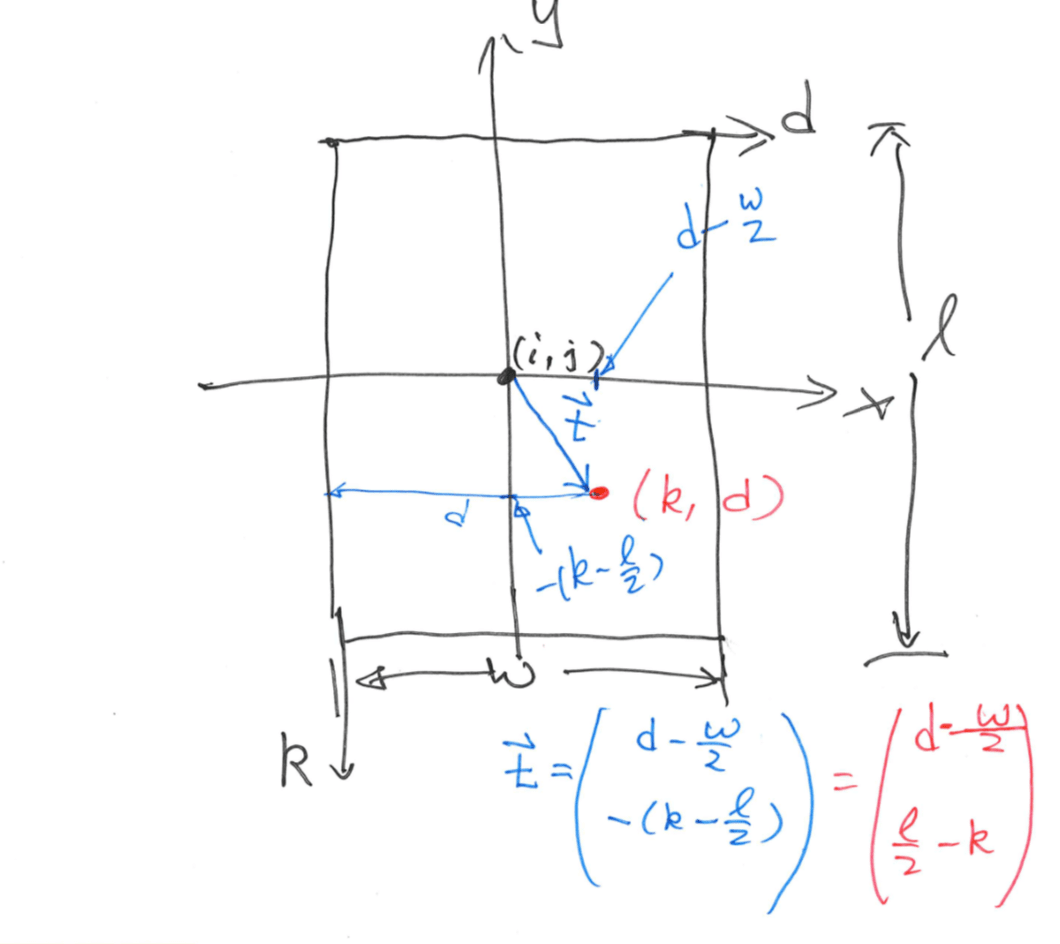 y
d
d - w/2
l
(i, j)
x
t⃗
(k, d)
d
-(k - l/2)
w
k
t⃗ = ( d - w/2 -(k - l/2) ) = ( d - w/2 l/2 - k )